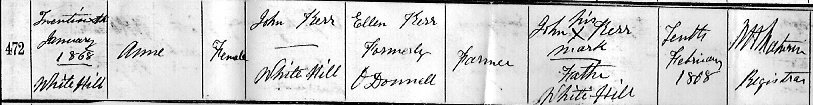 472
Twentieth
January
1868
White Hill
Anne
Female
John Kerr
White Hill
Ellen Kerr
formerly
O'Donnell
Farmer
John X Kerr
his
mark
Father
White Hill
Tenth
February
1868
Registrar